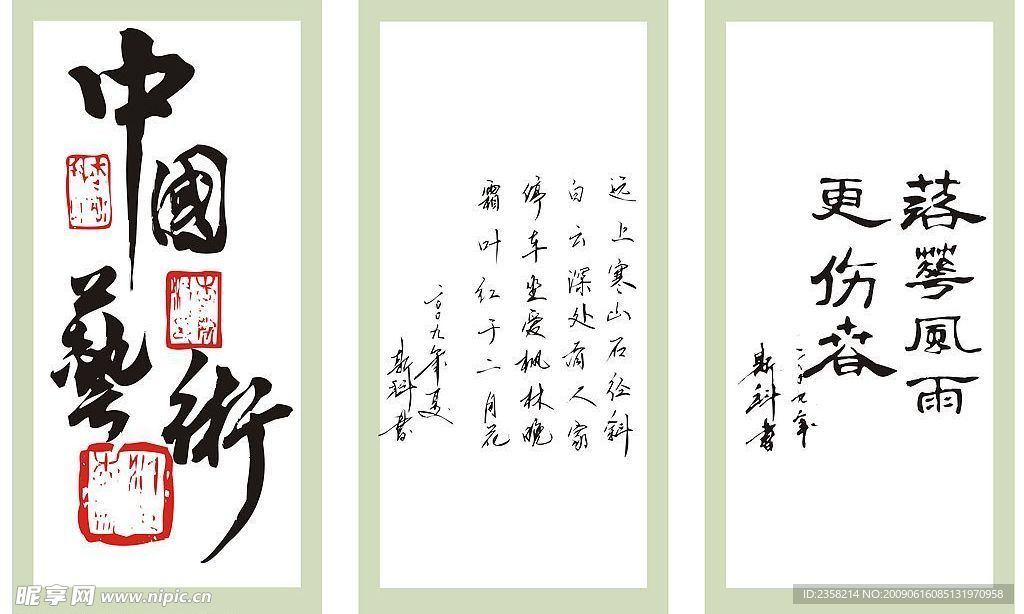 中國藝術
远上寒山石径斜
白云深处有人家
停车坐爱枫林晚
霜叶红于二月花
二〇〇九年夏
斯科书
落花風雨
更伤春
二〇〇九年
斯科书
昵享网 www.nipic.cn
ID:2358214 NO:20090616085131970958